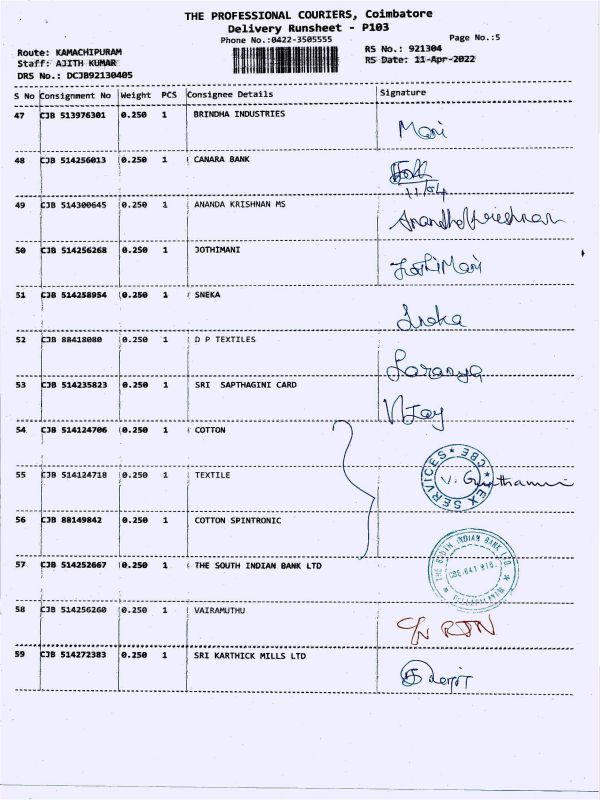 THE PROFESSIONAL COURIERS, Coimbatore
Delivery Runsheet - P103
Phone No.:0422-3505555
Page No.:5
Route: KAMACHIPURAM
RS No.: 921304
Staff: AJITH KUMAR
RS Date: 11-Apr-2022
DRS No.: DCJB92130405
S No Consignment No Weight PCS Consignee Details Signature
47 CJB 513976301 0.250 1 BRINDHA INDUSTRIES Mari
48 CJB 514256013 0.250 1 CANARA BANK
11/04
49 CJB 514300645 0.250 1 ANANDA KRISHNAN MS Anandhakrishnan
50 CJB 514256268 0.250 1 JOTHIMANI JothiMani
51 CJB 514258954 0.250 1 SNEKA
52 CJB 88418080 0.250 1 D P TEXTILES Saranya
53 CJB 514235823 0.250 1 SRI SAPTHAGINI CARD Vijay
54 CJB 514124706 0.250 1 COTTON
55 CJB 514124718 0.250 1 TEXTILE
56 CJB 88149842 0.250 1 COTTON SPINTRONIC
57 CJB 514252667 0.250 1 THE SOUTH INDIAN BANK LTD
THE SOUTH INDIAN BANK LTD.
58 CJB 514256260 0.250 1 VAIRAMUTHU C/N RTN
59 CJB 514272383 0.250 1 SRI KARTHICK MILLS LTD